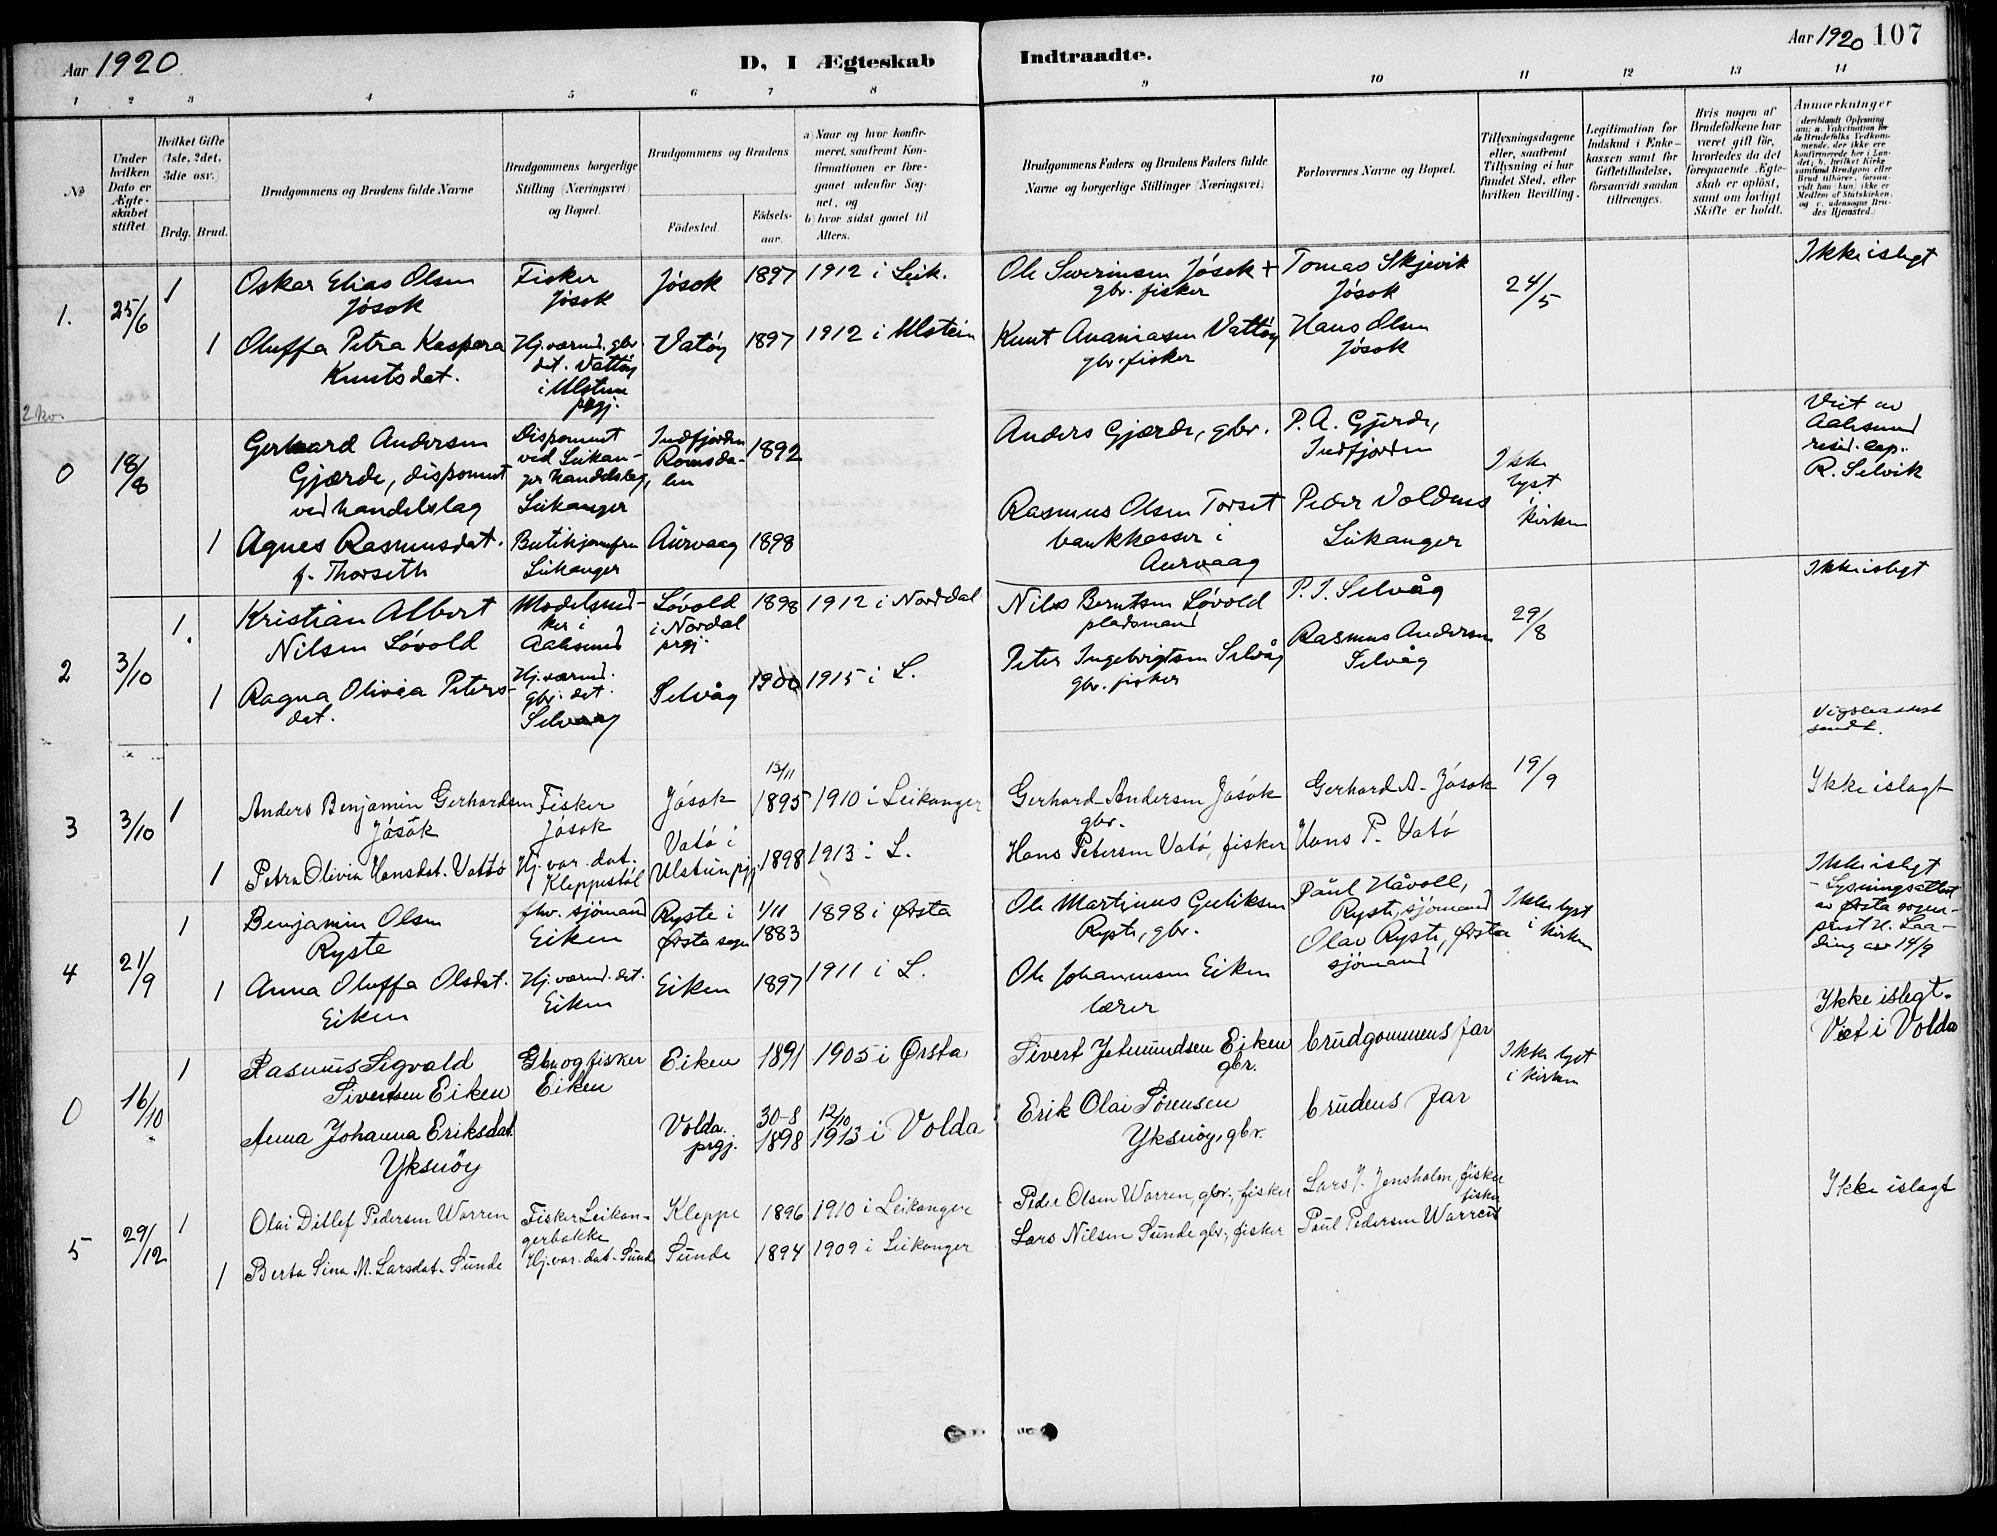 Aar 1920.
D. I Ægteskab Indtraadte.
Aar 1920 107
1 2 3 4 5 6 7 8 9 10 11 12 13 14
No
Under hvilken Dato er Ægteskabet stiftet.
Hvilket Gifte (1ste, 2det, 3die osv.)
Brdg. Brud.
Brudgommens og Brudens fulde Navne
Brudgommens borgerlige Stilling (Næringsvei) og Bopæl.
Brudgommens og Brudens
Fødested.
Fødselsaar.
a) Naar og hvor konfirmeret, saafremt Konfirmationen er foregaaet udenfor Sognet, og
b) hvor sidst gaaet til Alters.
Brudgommens Faders og Brudens Faders fulde Navne og borgerlige Stillinger (Næringsvei)
Forlovernes Navne og Bopæl.
Tillysningsdagene eller, saafremt Tillysning ei har fundet Sted, efter hvilken Bevilling.
Legitimation for Indskud i Enkekassen samt for Giftetilladelse, forsaavidt saadan tiltrænges.
Hvis nogen af Brudefolkene har været gift før, hvorledes da det foregaaende Ægteskab er opløst, samt om lovligt Skifte er holdt.
Anmærkninger
1. 25/6 1 Oskar Elias Olsen Fisker Jösok 1897 1912 i Leik. Ole Sverinsen Jösok + Tomas Skjevik 24/5 Ikke islegt
Jösok Jösok gbr. fisker Jösok
1 Oluffa Petra Kaspara Hj.værend. gbr Vatöy 1897 1912 i Ulstein Knut Ananiasen Vattöy Hans Olsen
Knutsdat. dat. Vattöy gbr. fisker Jösok
i Ulstein
prgj.
0 18/8 Gerhard Andersen Disponent Indfjorden 1892 Anders Gjærde, gbr. P. A. Gjerde, Ikke Viet av
Gjærde, disponent ved Leikan- Romsda- Indfjorden lyst Aalesund
ved handelslag ger handelslag, len i kirken resid. cap.
Leikanger R. Selvik
1 Agnes Rasmusdat. Butikjomfru Aurvaag 1898 Rasmus Olsen Torset Peder Voldnes
f. Thorseth Leikanger bankkasser i Leikanger
Aurvaag
2 3/10 1. Kristian Albert Modelsned- Lövold 1898 1912 i Norddal Nils Berntsen Lövold P. I. Selvåg 29/8 Ikke islegt
Nilsen Lövold ker i i Nordal pladsmand
Aalesund prgj.
1 Ragna Olivia Peters- Hj.værend. Selvåg 1900 1915 i L. Peter Ingebrigtsen Selvåg Rasmus Andersen
dat. gbr. dat. gbr. fisker Selvåg
Selvaag
sendt.
3 3/10 1 Anders Benjamin Gerhardsen Fisker Jösok 15/11 1895 1910 i Leikanger Gerhard Andersen Jösök Gerhard A. Jösok 19/9 Ikke islagt
Jösök Jösok gbr.
1 Petra Olivia Hansdat. Vattö Hj. vær. dat. Vatö i 1898 1913 i L. Hans Petersen Vatö, fisker Hans P. Vatö
Kleppestöl Ulstein prgj.
4 21/9 1 Benjamin Olsen fhv. sjömand Ryste i 1/11 1883 1898 i Ørsta Ole Martinus Guliksen Paul Håvoll, Ikke lyst Ikke islegt
Ryste Eiken Ørsta sogn Ryste, gbr. Ryste, sjömand i kirken - Lysningsattest
Olav Ryste, Ørsta av Ørsta sogne-
sjömand prest H. Laa-
ding av 14/9
1 Anna Oluffa Olsdat. Hj. værend. dat. Eiken 1897 1911 i L. Ole Johannessen Eiken
Eiken Eiken lærer
0 16/10 1 Rasmus Sigvald Gbr. og fisker Eiken 1891 1905 i Ørsta Sivert Jetmundsen Eiken brudgommens far Ikke lyst Ikke islegt.
Sivertsen Eiken Eiken gbr. i kirken Viet i Volda
Anna Johanna Eriksdat. Volda. 30-8 1898 12/10 1913 i Volda Erik Olai Sörensen brudens far
Yksnöy prgj. Yksnöy, gbr.
5 29/12 1 Olai Ditlef Pedersen Warren Fisker Leikan- Kleppe 1896 1910 i Leikanger Peder Olsen Warren, gbr., fisker Lars J. Jensholm, fisker Ikke islagt
gerbakke
1 Berta Sina M. Larsdat. Sunde Hj. vær. dat. Sunde Sunde 1894 1909 i Leikanger Lars Nilsen Sunde gbr., fisker Paul Pedersen Warren fisker